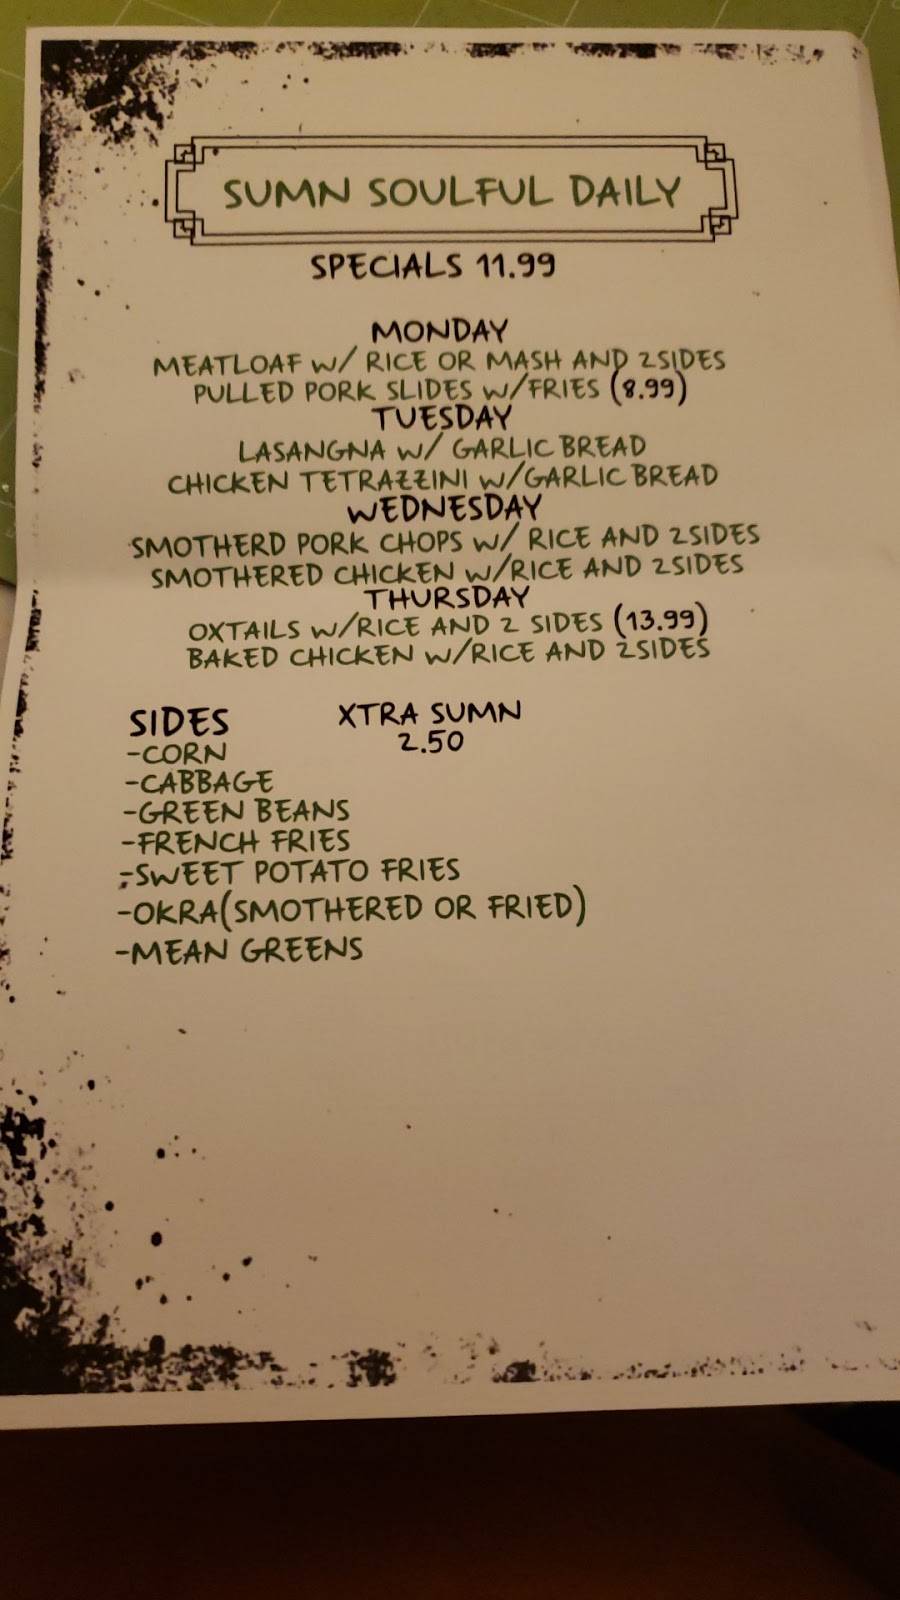 SUMN SOULFUL DAILY
SPECIALS 11.99
MONDAY
MEATLOAF W/ RICE OR MASH AND 2SIDES
PULLED PORK SLIDES W/FRIES (8.99)
TUESDAY
LASANGNA W/ GARLIC BREAD
CHICKEN TETRAZZINI W/GARLIC BREAD
WEDNESDAY
SMOTHERD PORK CHOPS W/ RICE AND 2SIDES
SMOTHERED CHICKEN W/RICE AND 2SIDES
THURSDAY
OXTAILS W/RICE AND 2 SIDES (13.99)
BAKED CHICKEN W/RICE AND 2SIDES
SIDES
-CORN
-CABBAGE
-GREEN BEANS
-FRENCH FRIES
-SWEET POTATO FRIES
-OKRA(SMOTHERED OR FRIED)
-MEAN GREENS
XTRA SUMN
2.50